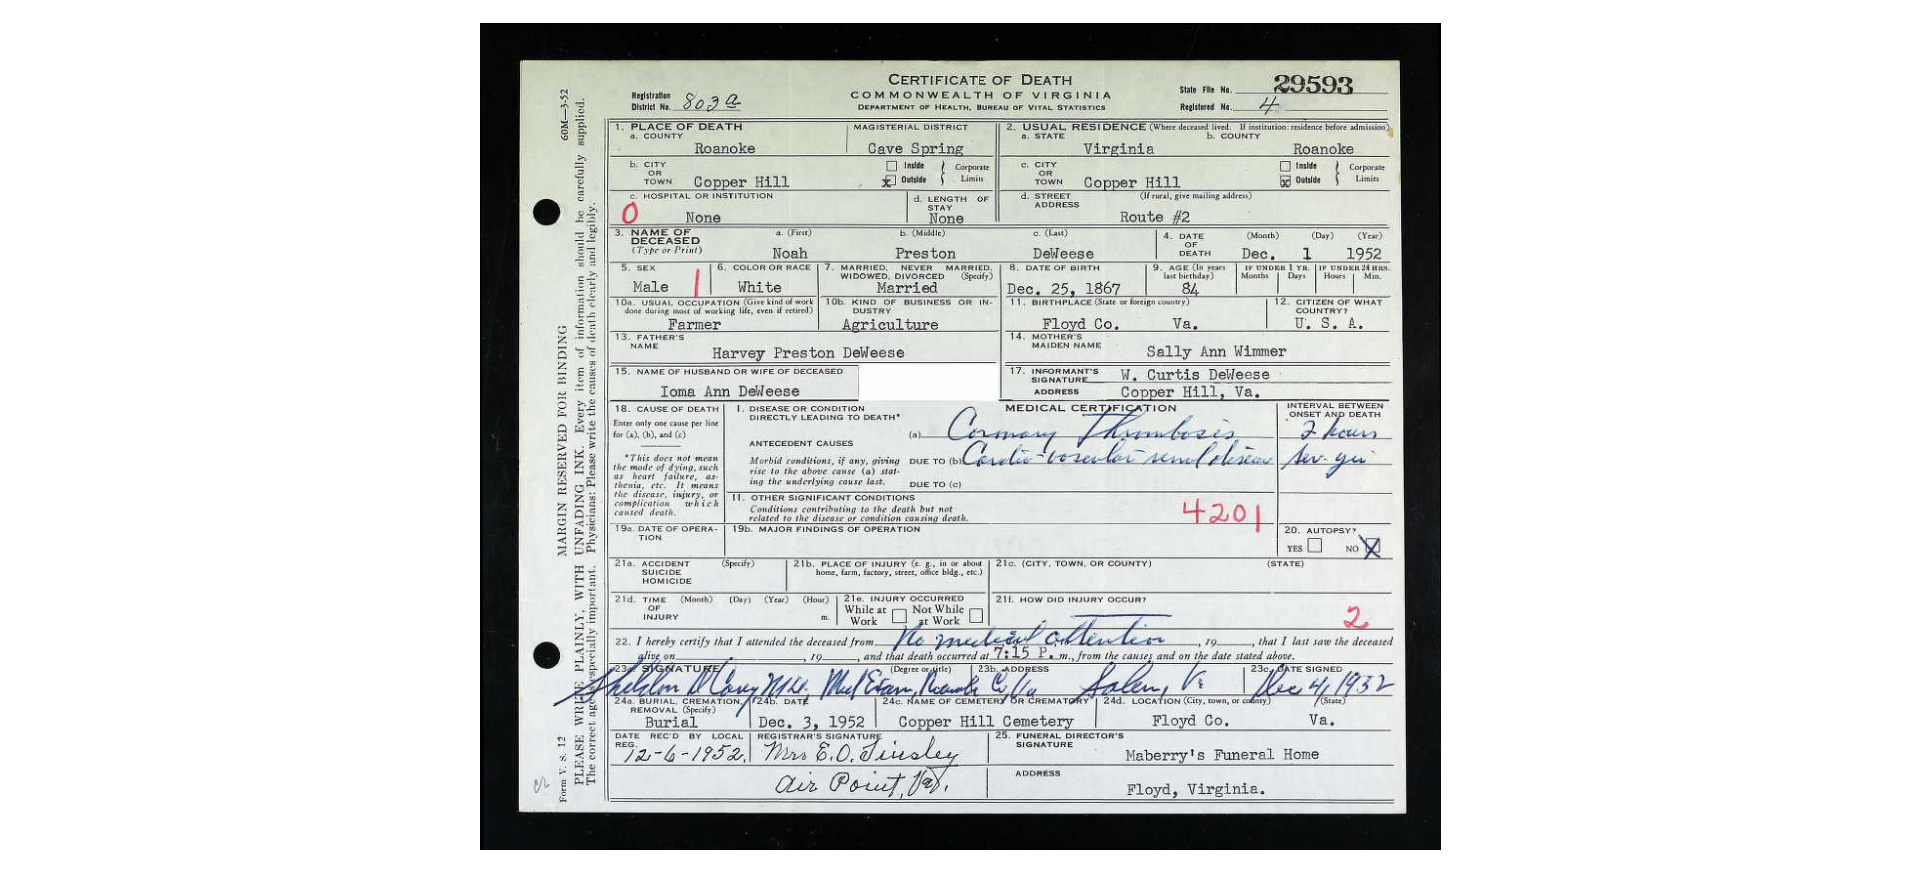 CERTIFICATE OF DEATH
COMMONWEALTH OF VIRGINIA
DEPARTMENT OF HEALTH, BUREAU OF VITAL STATISTICS
Registration District No. 803a
State File No. 29593
Registered No. 4
60M—3-52
MARGIN RESERVED FOR BINDING
PLEASE WRITE PLAINLY, WITH UNFADING INK. Every item of information should be carefully supplied.
The correct age is especially important. Physicians: Please write the causes of death clearly and legibly.
Form V. S. 12
1. PLACE OF DEATH
a. COUNTY Roanoke
MAGISTERIAL DISTRICT Cave Spring
2. USUAL RESIDENCE (Where deceased lived. If institution: residence before admission)
a. STATE Virginia
b. COUNTY Roanoke
b. CITY OR TOWN Copper Hill
Inside
x Outside
Corporate Limits
c. CITY OR TOWN Copper Hill
Inside
x Outside
Corporate Limits
c. HOSPITAL OR INSTITUTION
0 None
d. LENGTH OF STAY None
d. STREET ADDRESS (If rural, give mailing address)
Route #2
3. NAME OF DECEASED (Type or Print)
a. (First) Noah
b. (Middle) Preston
c. (Last) DeWeese
4. DATE OF DEATH (Month) (Day) (Year)
Dec. 1 1952
5. SEX Male 1
6. COLOR OR RACE White
7. MARRIED, NEVER MARRIED, WIDOWED, DIVORCED (Specify) Married
8. DATE OF BIRTH Dec. 25, 1867
9. AGE (In years last birthday) 84
IF UNDER 1 YR. Months Days
IF UNDER 24 HRS. Hours Min.
10a. USUAL OCCUPATION (Give kind of work done during most of working life, even if retired)
Farmer
10b. KIND OF BUSINESS OR INDUSTRY
Agriculture
11. BIRTHPLACE (State or foreign country)
Floyd Co. Va.
12. CITIZEN OF WHAT COUNTRY?
U. S. A.
13. FATHER'S NAME
Harvey Preston DeWeese
14. MOTHER'S MAIDEN NAME
Sally Ann Wimmer
15. NAME OF HUSBAND OR WIFE OF DECEASED
Ioma Ann DeWeese
17. INFORMANT'S SIGNATURE W. Curtis DeWeese
ADDRESS Copper Hill, Va.
18. CAUSE OF DEATH
Enter only one cause per line for (a), (b), and (c)
*This does not mean the mode of dying, such as heart failure, asthenia, etc. It means the disease, injury, or complication which caused death.
MEDICAL CERTIFICATION
INTERVAL BETWEEN ONSET AND DEATH
I. DISEASE OR CONDITION DIRECTLY LEADING TO DEATH*
(a) Coronary Thrombosis 2 hours
ANTECEDENT CAUSES
Morbid conditions, if any, giving rise to the above cause (a) stating the underlying cause last.
DUE TO (b) Cardio-vascular-renal disease sev. yrs
DUE TO (c)
II. OTHER SIGNIFICANT CONDITIONS
Conditions contributing to the death but not related to the disease or condition causing death.
4201
19a. DATE OF OPERATION
19b. MAJOR FINDINGS OF OPERATION
20. AUTOPSY?
YES NO X
21a. ACCIDENT SUICIDE HOMICIDE (Specify)
21b. PLACE OF INJURY (e. g., in or about home, farm, factory, street, office bldg., etc.)
21c. (CITY, TOWN, OR COUNTY) (STATE)
21d. TIME OF INJURY (Month) (Day) (Year) (Hour) m.
21e. INJURY OCCURRED
While at Work Not While at Work
21f. HOW DID INJURY OCCUR?
2
22. I hereby certify that I attended the deceased from No medical attention, 19 , that I last saw the deceased
alive on , 19 , and that death occurred at 7:15 P. m., from the causes and on the date stated above.
23a. SIGNATURE (Degree or title)
Sheldon M.D., Med Exam, Roanoke Co, Va
23b. ADDRESS
Salem, Va
23c. DATE SIGNED
Dec 4, 1952
24a. BURIAL, CREMATION, REMOVAL (Specify)
Burial
24b. DATE
Dec. 3, 1952
24c. NAME OF CEMETERY OR CREMATORY
Copper Hill Cemetery
24d. LOCATION (City, town, or county) (State)
Floyd Co. Va.
DATE REC'D BY LOCAL REG.
12-6-1952
REGISTRAR'S SIGNATURE
Mrs E.O. Tinsley
Air Point, Va.
25. FUNERAL DIRECTOR'S SIGNATURE
Maberry's Funeral Home
ADDRESS
Floyd, Virginia.